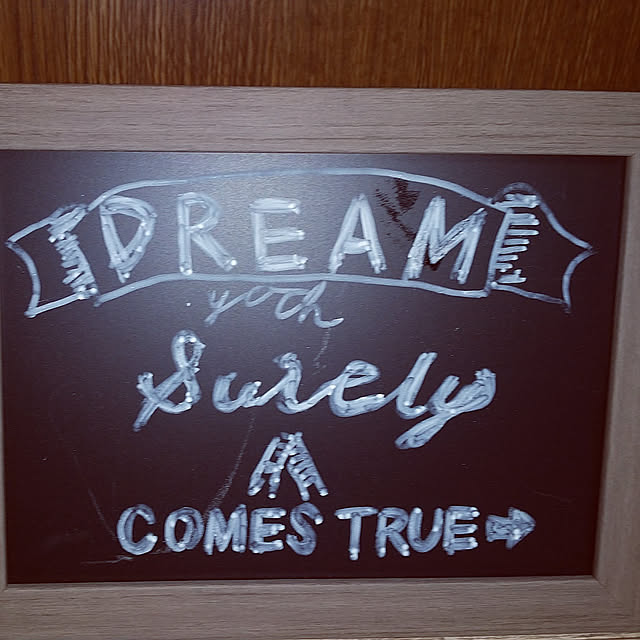 DREAM
Surely
A
COMES TRUE